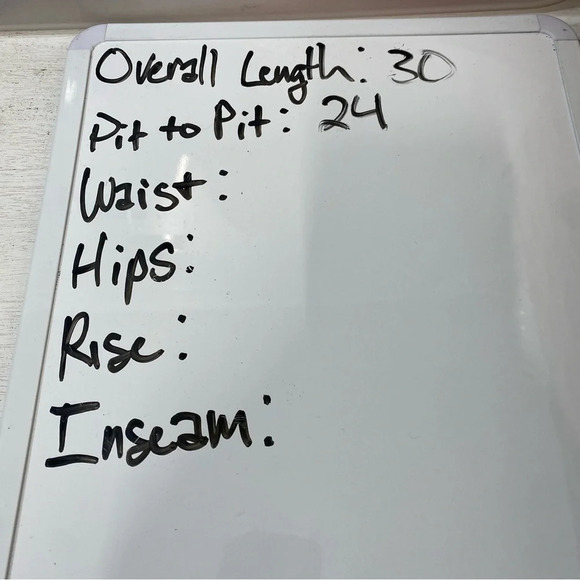 Overall Length: 30
Pit to Pit: 24
Waist:
Hips:
Rise:
Inseam: